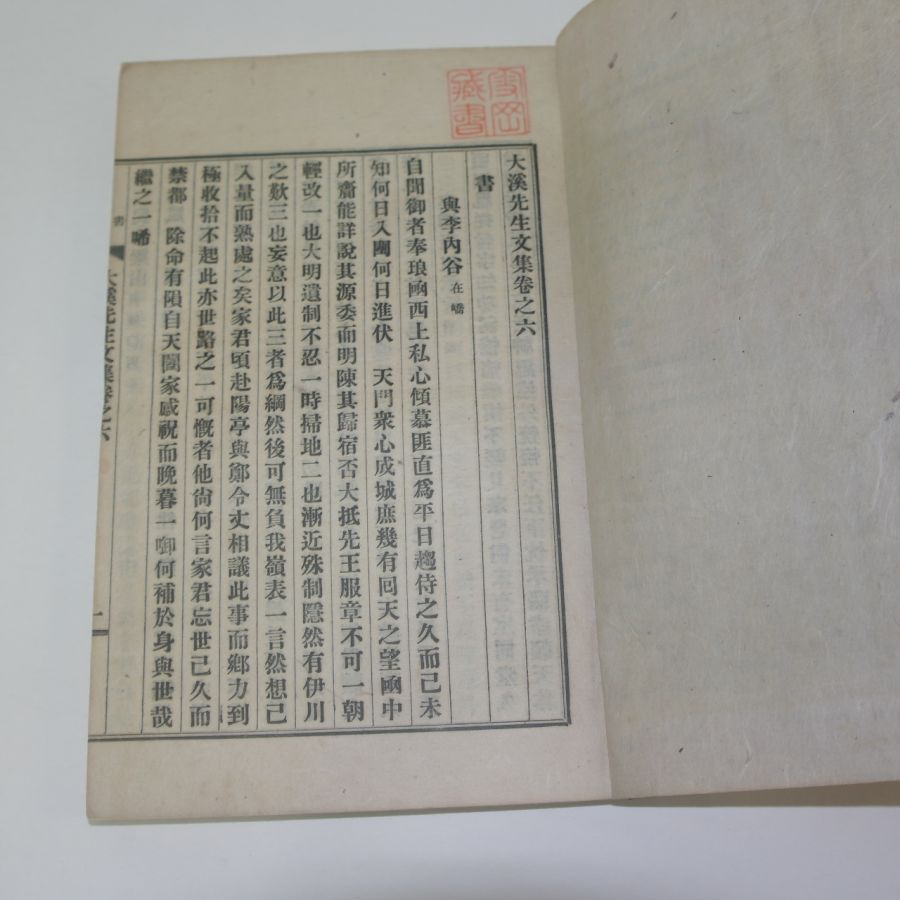 雪岡藏書
大溪先生文集卷之六
書
與李內谷 在嶠
自聞御者奉琅函西上私心傾慕匪直爲平日趨侍之久而已未
知何日入闉何日進伏 天門衆心成城庶幾有回天之望函中
所齋能詳說其源委而明陳其歸宿否大抵先王服章不可一朝
輕改一也大明遺制不忍一時掃地二也漸近殊制隱然有伊川
之歎三也妄意以此三者爲綱然後可無負我嶺表一言然想已
入量而熟處之矣家君頃赴陽亭與鄭令丈相議此事而鄕力到
極收拾不起此亦世路之一可慨者他尙何言家君忘世已久而
禁都 除命有隕自天闔家感祝而晩暮一啣何補於身與世哉
繼之一唏
書
大溪先生文集卷之六
一